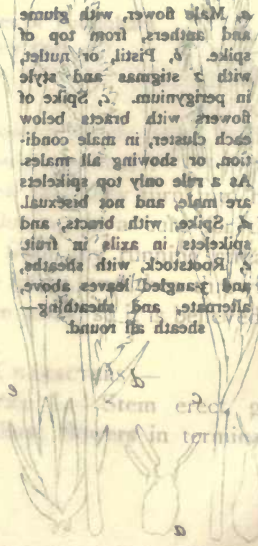 a, Male flower, with glume
and anthers, from top of
spike. b, Pistil, or nutlet,
with 2 stigmas and style
in perigynium. c, Spike of
flowers with bracts below
each cluster, in male condi-
tion, or showing all males.
As a rule only top spikelets
are male, and not bisexual.
d, Spike, with bracts, and
spikelets in axils in fruit.
e, Rootstock, with sheaths,
and 3-angled leaves above,
alternate, and sheathing—
sheath all round.
e
d
c
Stem erect, g
in termina
a